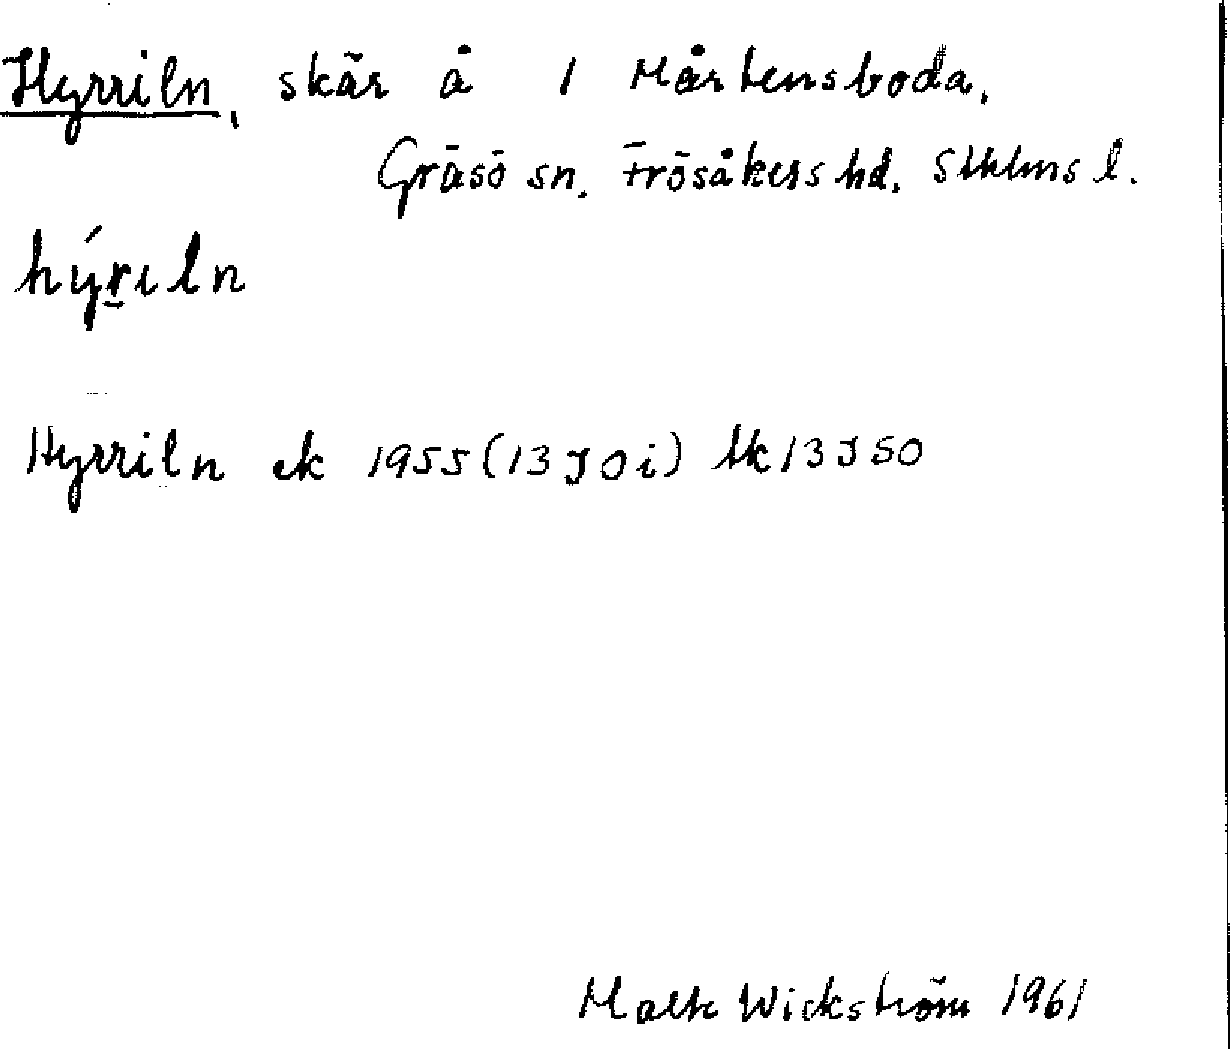 Hyrriln, skär å 1 Mårtensboda,
Gräsö sn. Frösåkers hd. Sthlms l.
hýr̲ıln
Hyrriln ek 1955 (13 J 0 i) tk 13 J SO
Malte Wickström 1961